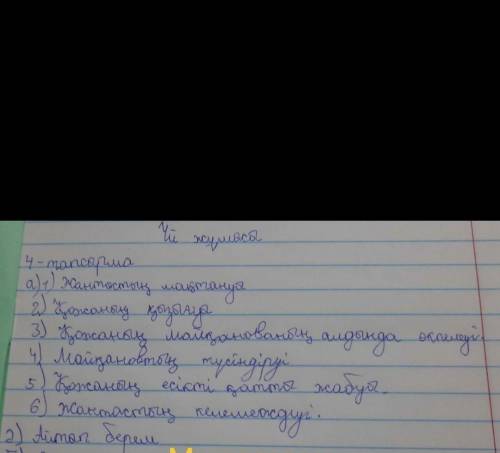 Үй жұмысы
4-тапсырма
а) 1) Жантастың мақтануы
2) Қожаның қызығуы
3) Қожаның майқанованың алдында өкпелеуі
4) Майқановтың түсіндіруі
5) Қожаның есікті қатты жабуы.
6) Жантастың келемеждеуі.
2) Айтып берем